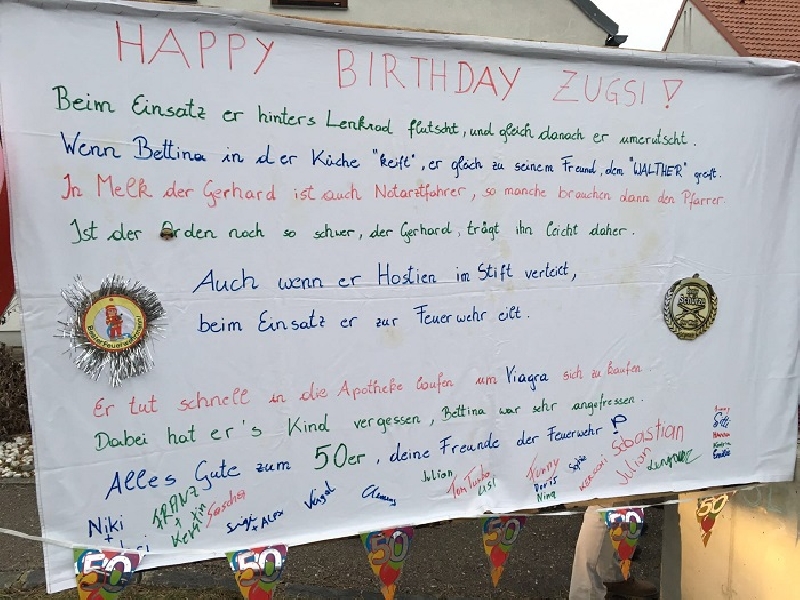 HAPPY BIRTHDAY ZUGSI !
Beim Einsatz er hinters Lenkrad flutscht, und gleich danach er umerutscht.
Wenn Bettina in der Küche "keift", er gleich zu seinem Freund, dem "WALTHER" greift.
In Melk der Gerhard ist auch Notarztfahrer, so manche brauchen dann den Pfarrer.
Ist der Orden noch so schwer, der Gerhard, trägt ihn leicht daher.
Auch wenn er Hostien im Stift verteilt,
beim Einsatz er zur Feuerwehr eilt.
Er tut schnell in die Apotheke laufen um Viagra sich zu kaufen.
Dabei hat er's Kind vergessen, Bettina war sehr angefressen.
Alles Gute zum 50er, deine Freunde der Feuerwehr !
Niki
+
FRANZ
+
Kerstin
Sascha
+ Alex
Vogal
Julian
Tom Turbo
Lisi
Funny
Doris
Nina
Sofie
Sebastian
Julian
50 50 50 50 50 50